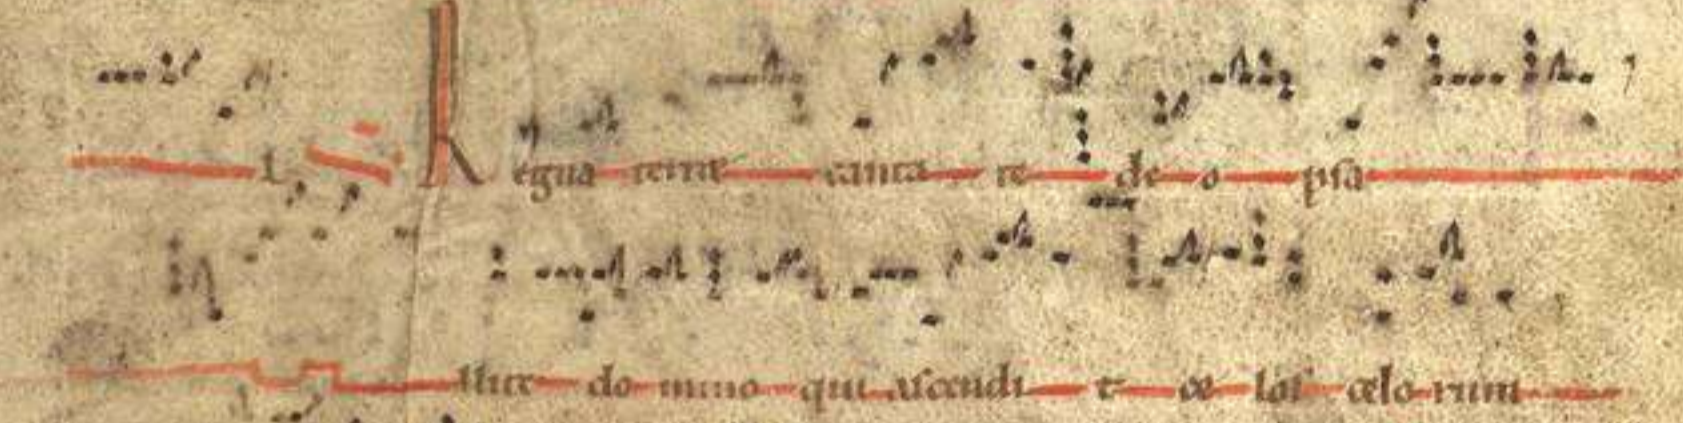 Regna terre canta te de o psa
llite do mino qui ascendi t ce los celo rum